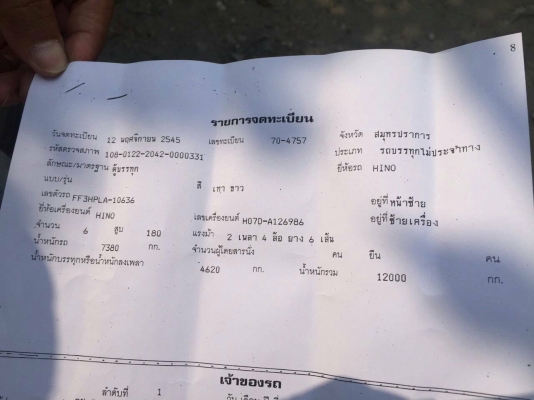 8
รายการจดทะเบียน
วันจดทะเบียน 12 พฤศจิกายน 2545 เลขทะเบียน 70-4757 จังหวัด สมุทรปราการ
รหัสตรวจสภาพ 108-0122-2042-0000331 ประเภท รถบรรทุกไม่ประจำทาง
ลักษณะ/มาตรฐาน ตู้บรรทุก ยี่ห้อรถ HINO
แบบ/รุ่น สี เทา ขาว
เลขตัวรถ FF3HPLA-10636 อยู่ที่ หน้าซ้าย
ยี่ห้อเครื่องยนต์ HINO เลขเครื่องยนต์ H07D-A126986 อยู่ที่ ซ้ายเครื่อง
จำนวน 6 สูบ 180 แรงม้า 2 เพลา 4 ล้อ ยาง 6 เส้น
น้ำหนักรถ 7380 กก. จำนวนผู้โดยสารนั่ง คน ยืน คน
น้ำหนักบรรทุกหรือน้ำหนักลงเพลา 4620 กก. น้ำหนักรวม 12000 กก.
เจ้าของรถ
ลำดับที่ 1